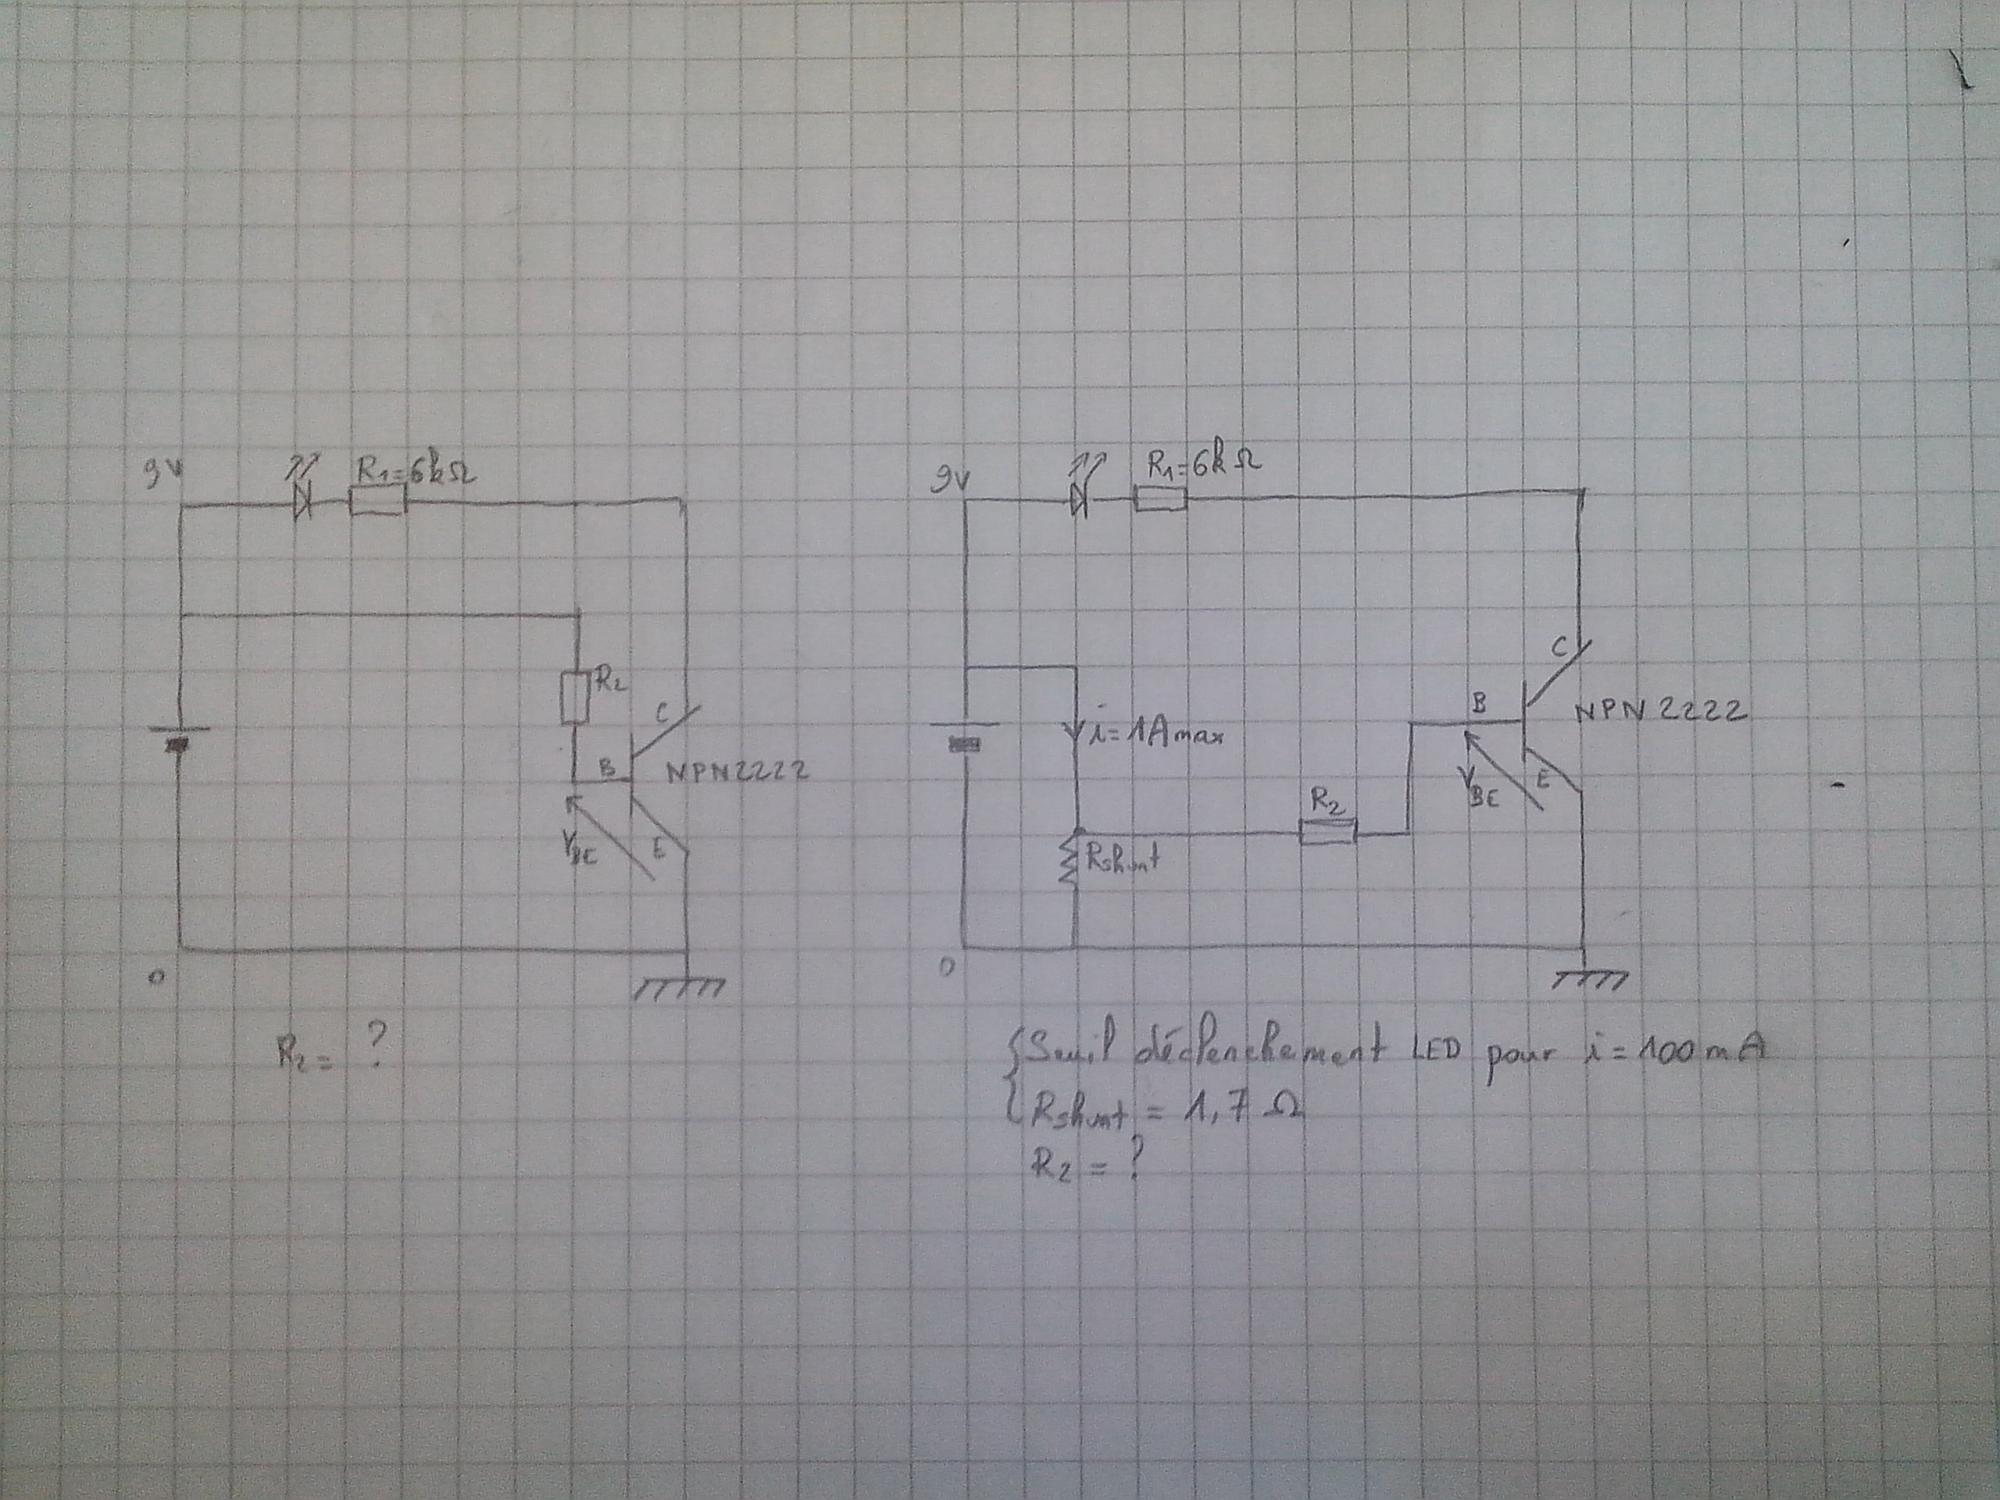 9V
R1=6kΩ
R2
C
B
NPN2222
VBE
E
0
R2 = ?
9V
R1=6kΩ
C
B
NPN2222
i=1A max
VBE
E
R2
Rshunt
0
Seuil déclenchement LED pour i = 100 mA
Rshunt = 1,7 Ω
R2 = ?